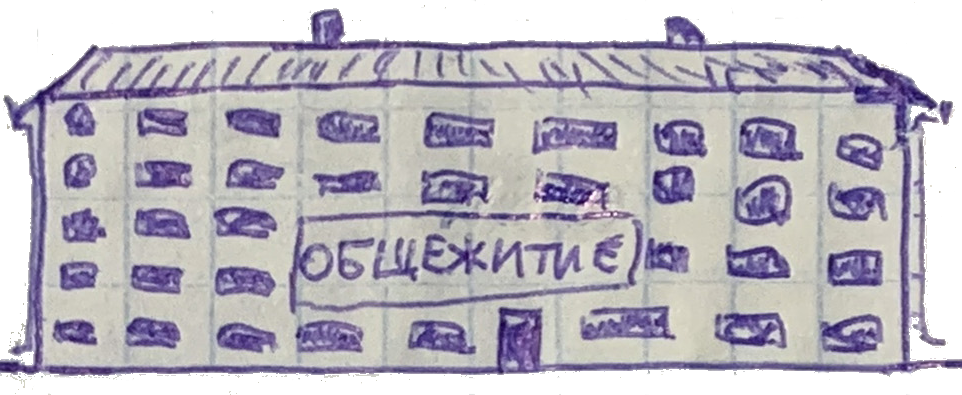 ОБЩЕЖИТИЕ